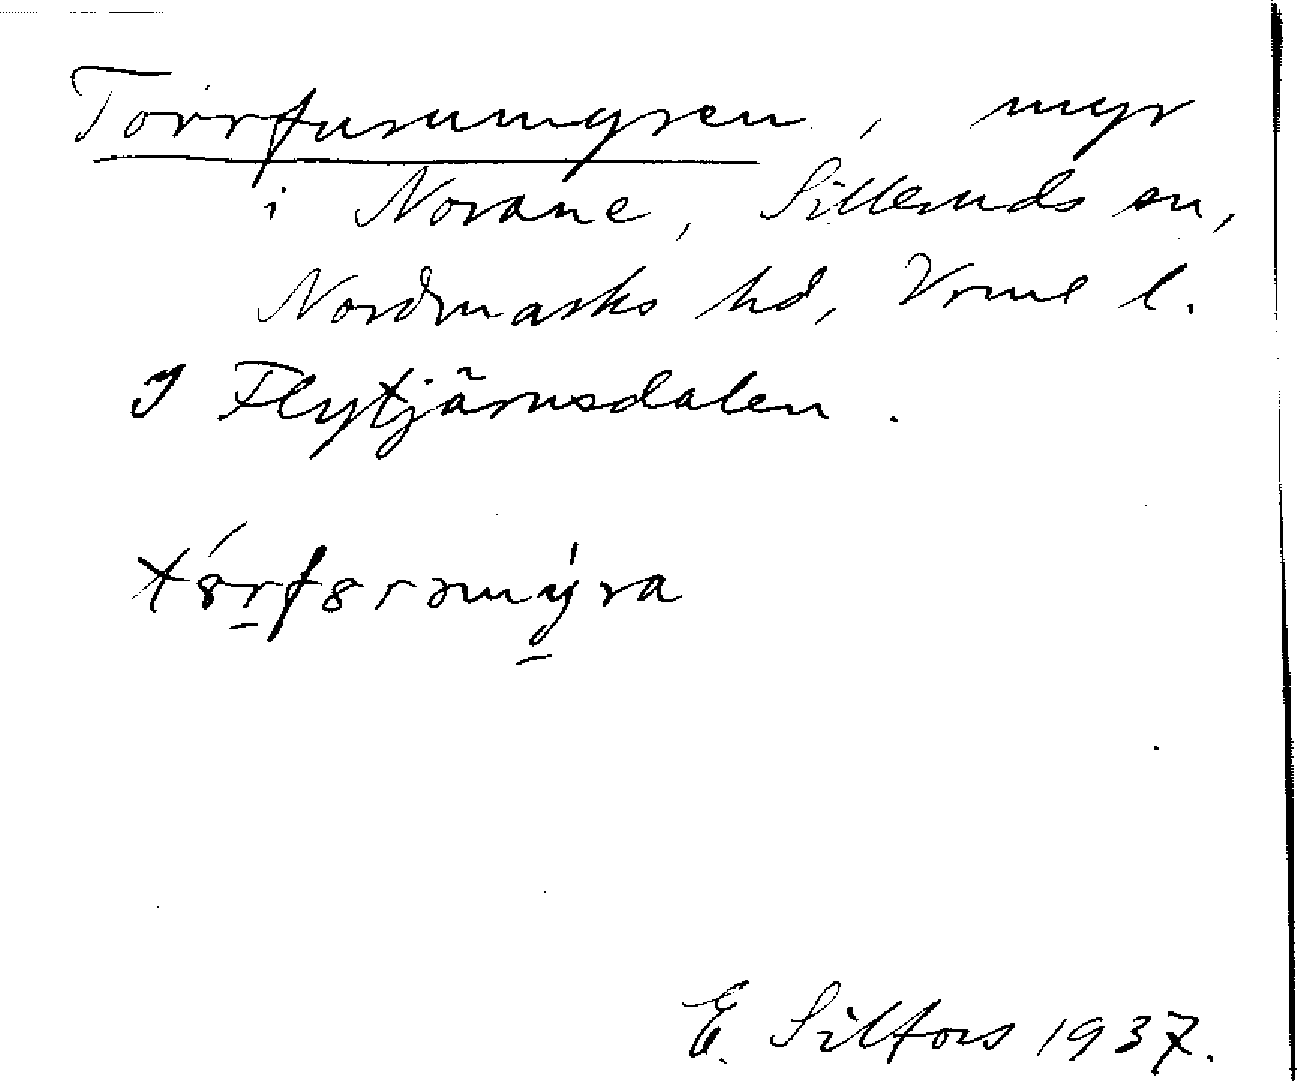 Torrfurumyren, myr
i Norane, Silleruds sn,
Nordmarks hd, Vrml l.
I Flytjärnsdalen.
tó̱rf8rəmý̱ra
E. Silfors 1937.